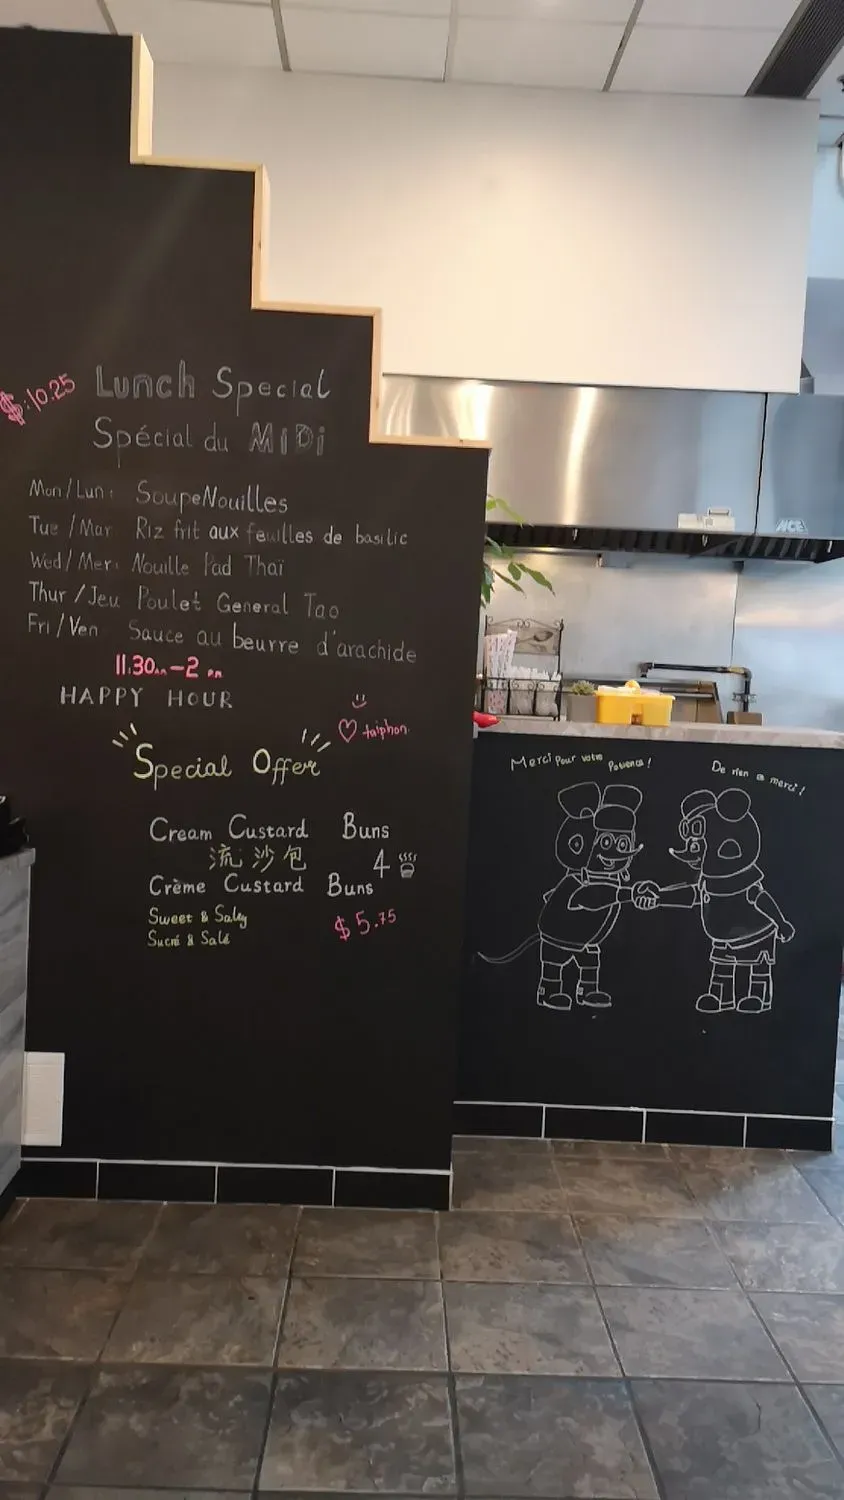 $:10.25
Lunch Special
Spécial du MiDi
Mon/Lun: SoupeNouilles
Tue/Mar Riz frit aux feuilles de basilic
Wed/Mer: Nouille Pad Thaï
Thur/Jeu Poulet General Tao
Fri/Ven Sauce au beurre d'arachide
11.30am-2 pm
HAPPY HOUR
taiphon
Special Offer
Cream Custard Buns
流沙包 4
Crème Custard Buns
Sweet & Salty
$5.75
Sucré & Salé
Merci pour votre Patience!
De rien e merci!
NCE